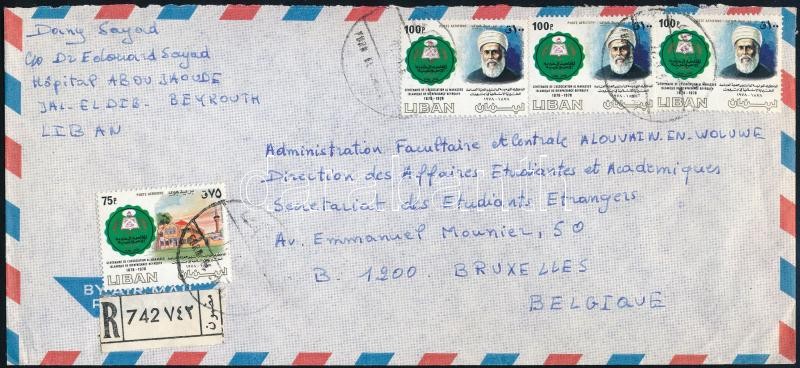 Dany Sayad
C/o Dr Edouard Sayad
Hôpital ABOU JAOUDE
JAL-EL DIB. BEYROUTH
LIBAN
100P POSTE AERIENNE ٣١٠٠
CENTENAIRE DE L'ASSOCIATION AL MAKASSED
ISLAMIQUE DE BIENFAISANCE-BEYROUTH
1878-1978 ١٨٧٨-١٩٧٨
LIBAN لبنان
100P POSTE AERIENNE ٣١٠٠
CENTENAIRE DE L'ASSOCIATION AL MAKASSED
ISLAMIQUE DE BIENFAISANCE-BEYROUTH
1878-1978 ١٨٧٨-١٩٧٨
LIBAN لبنان
100P ٣١٠٠
CENTENAIRE DE L'ASSOCIATION AL MAKASSED
ISLAMIQUE DE BIENFAISANCE-BEYROUTH
1878-1978 ١٨٧٨-١٩٧٨
LIBAN لبنان
Administration Facultaire et Centrale A LOUVAIN.EN.WOLUWE
Direction des Affaires Etudiantes et Academiques
Secretariat des Etudiants Etrangers
Av. Emmanuel Mounier, 50
B. 1200. BRUXELLES
BELGIQUE
75P POSTE AERIENNE ٧٥
CENTENAIRE DE L'ASSOCIATION AL MAKASSED
ISLAMIQUE DE BIENFAISANCE-BEYROUTH
1878-1978
LIBAN لبنان
BY AIR MAIL
R 742 ٧٤٢ مضمون